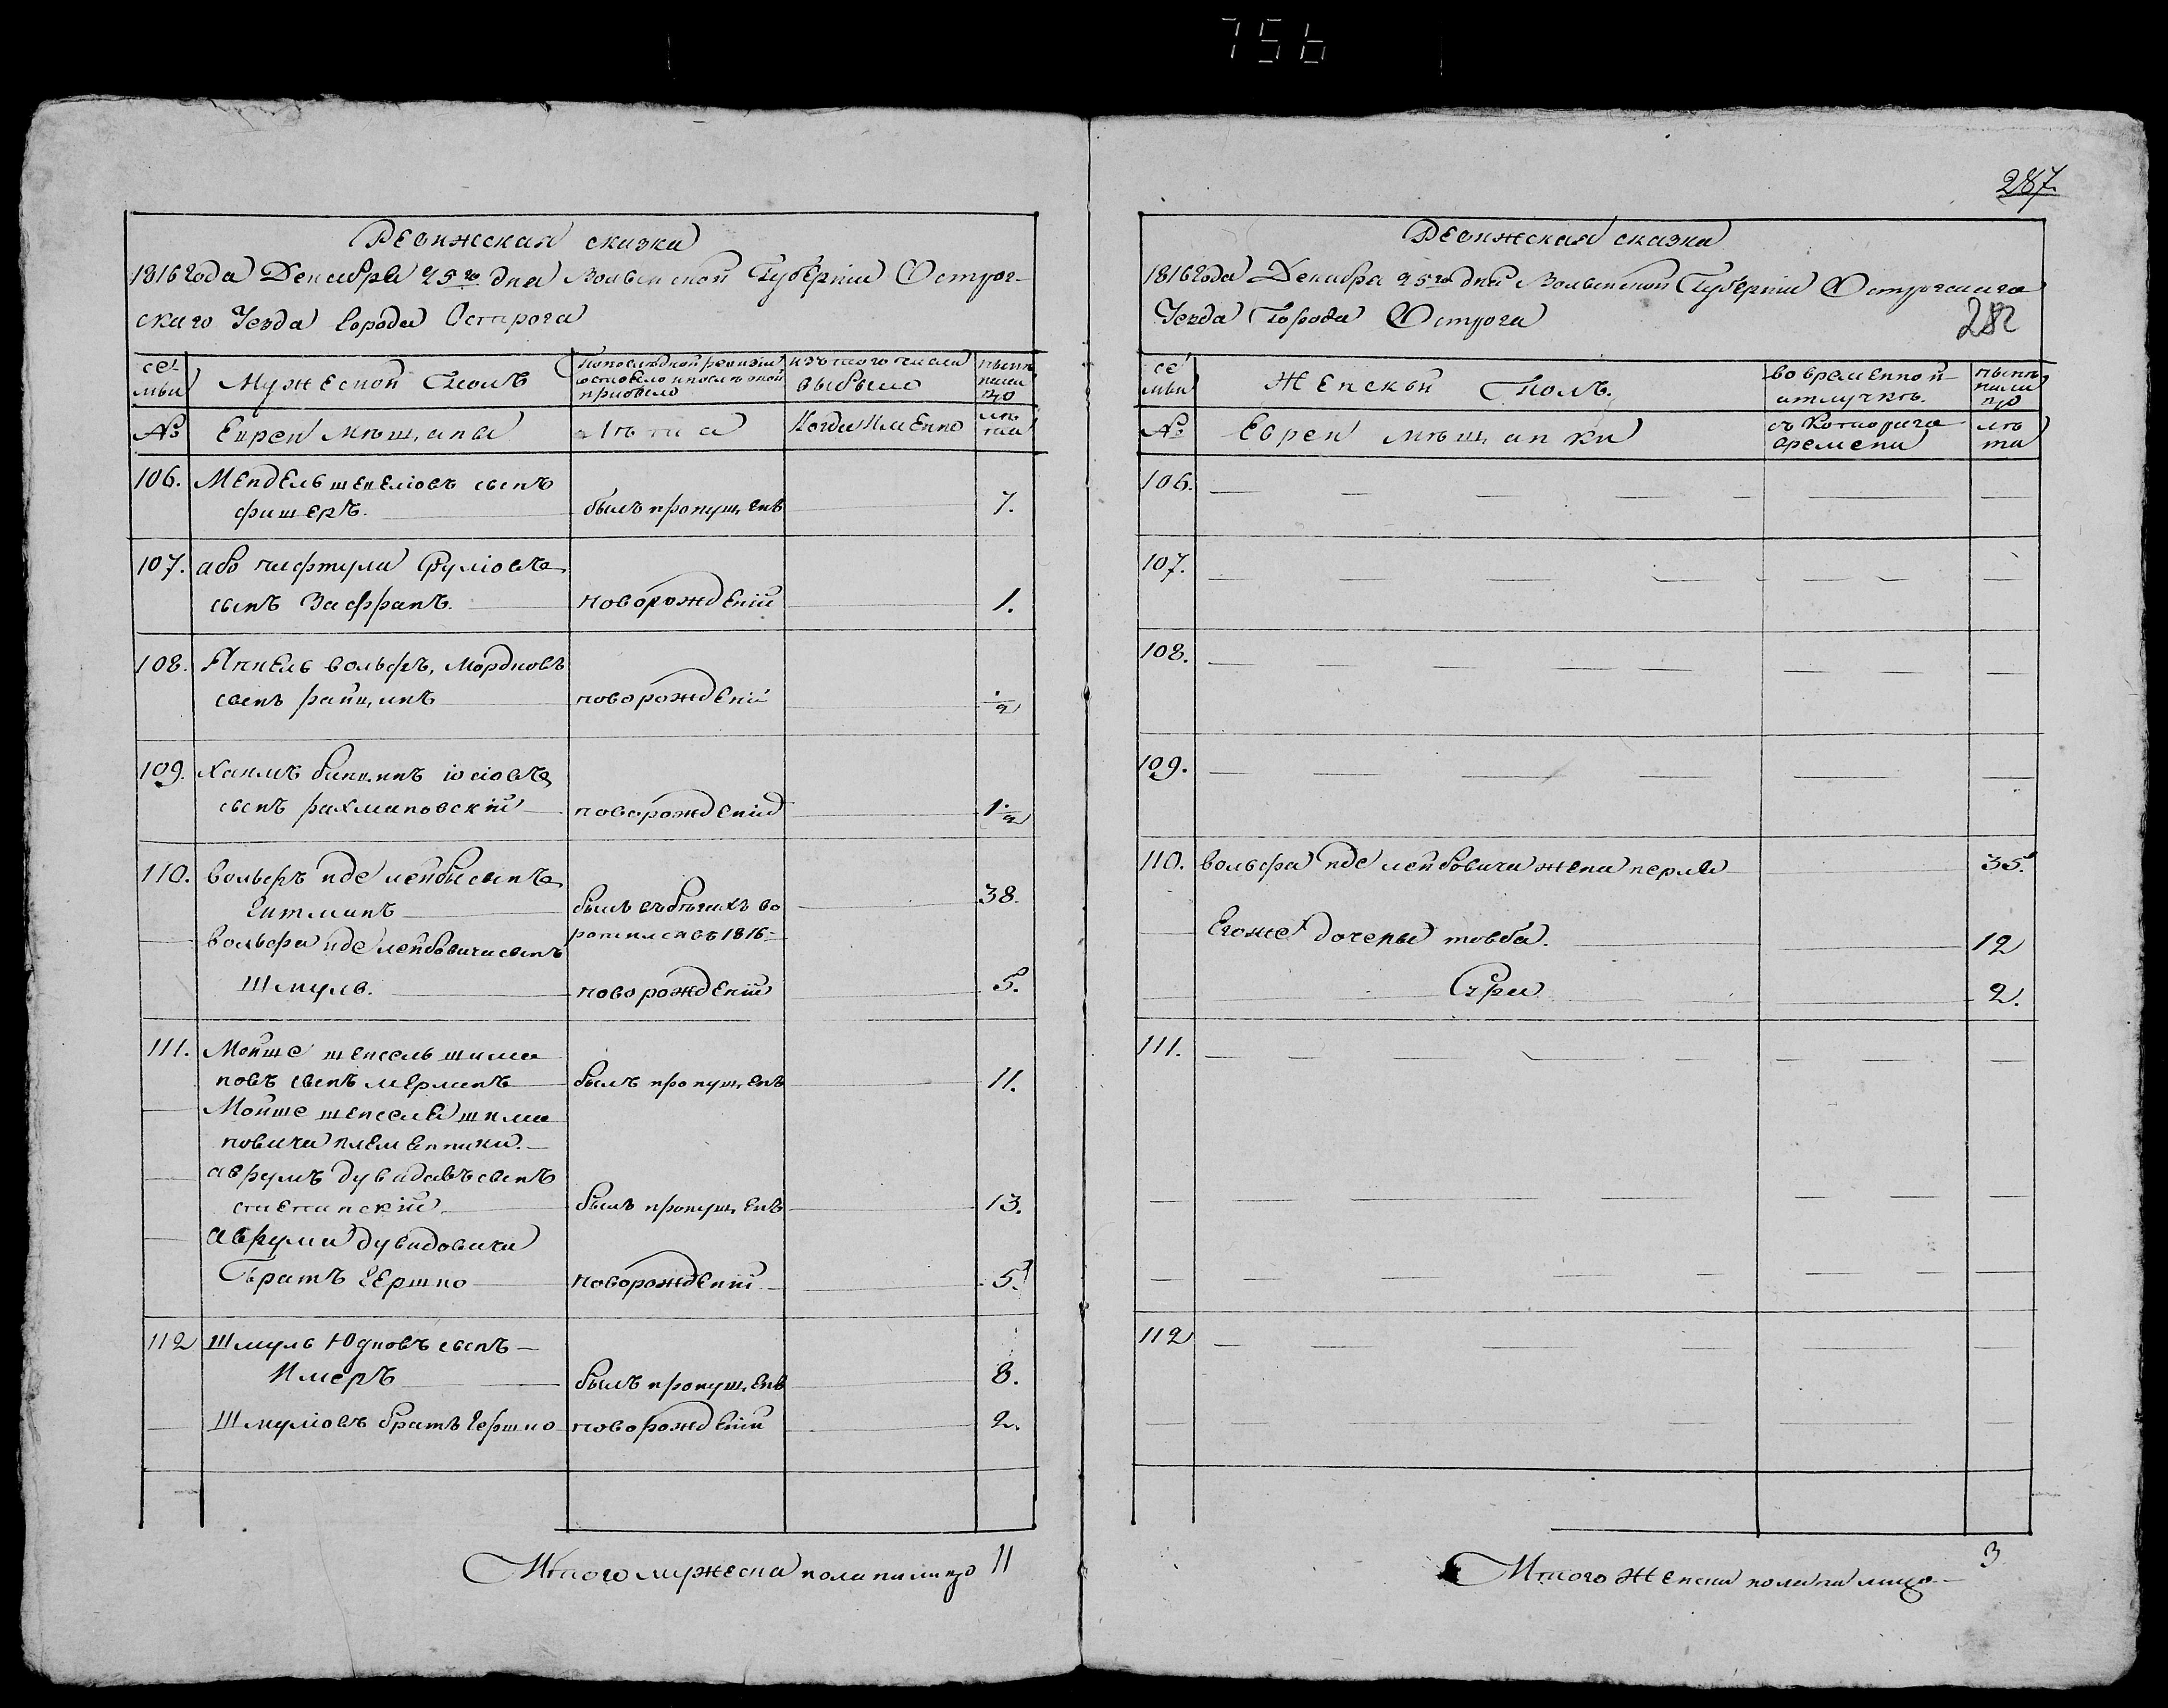 756
Ревижская сказка
1816 года Декабря 25го дня Волынской Губернiи Острог-
скаго Уезда Города Острога
се
мьи
Мужеской Полъ
По последной ревизiи
состояло и после оной
прибыло
изъ того числа
выбыло
ныне
нали
цо
№
Евреи мещана
Лета
Когда Именно
ле
та
106. Мендель шепселiовъ сынъ
фишеръ.
былъ пропущенъ
7.
107. або нафтула Сруліовъ
сынъ Зафранъ.
новорожденiй
1.
108. Янкель вольфъ, Мордковъ
сынъ райцинъ
новорожденiй
1/2
109. Хаимъ беньминъ iосiовъ
сынъ рахмановскiй
новорожденiй
1 1/2
110. вольфъ иде лейбы сынъ
Гитманъ
былъ въ бегахъ во
ротился въ 1816-
38.
вольфа иде лейбовича сынъ
Шмуль.
новорожденiй
5.
111. Мойше шепсель шима
новъ сынъ мерминъ
былъ пропущенъ
11.
Мойше шепселя шима
новича племенники.
аврумъ дувидовъ сынъ
степанскiй
былъ пропущенъ
13.
аврума дувидовича
братъ Гершко
новорожденiй
5.
112 Шмуль Юдковъ сынъ
Имеръ
былъ пропущенъ
8.
Шмулiовъ братъ Гершко
новорожденiй
2.
Итого мужеска пола налицо 11
287.
Ревижская сказка
1816 Года Декабря 25го дня Волынской Губернiи Острогскаго
Уезда Города Острога
282
се
мьи
Женскiй Полъ.
во временной
отлучке.
ныне
нали
цо
№
Евреи мещанки
съ Котораго
времени
ле
та
106.
107.
108.
109.
110. вольфа иде лейбовича жена перля
35.
Егоже дочери товба.
12
Сура
2.
111.
112
Итого Женска пола на лицо
3